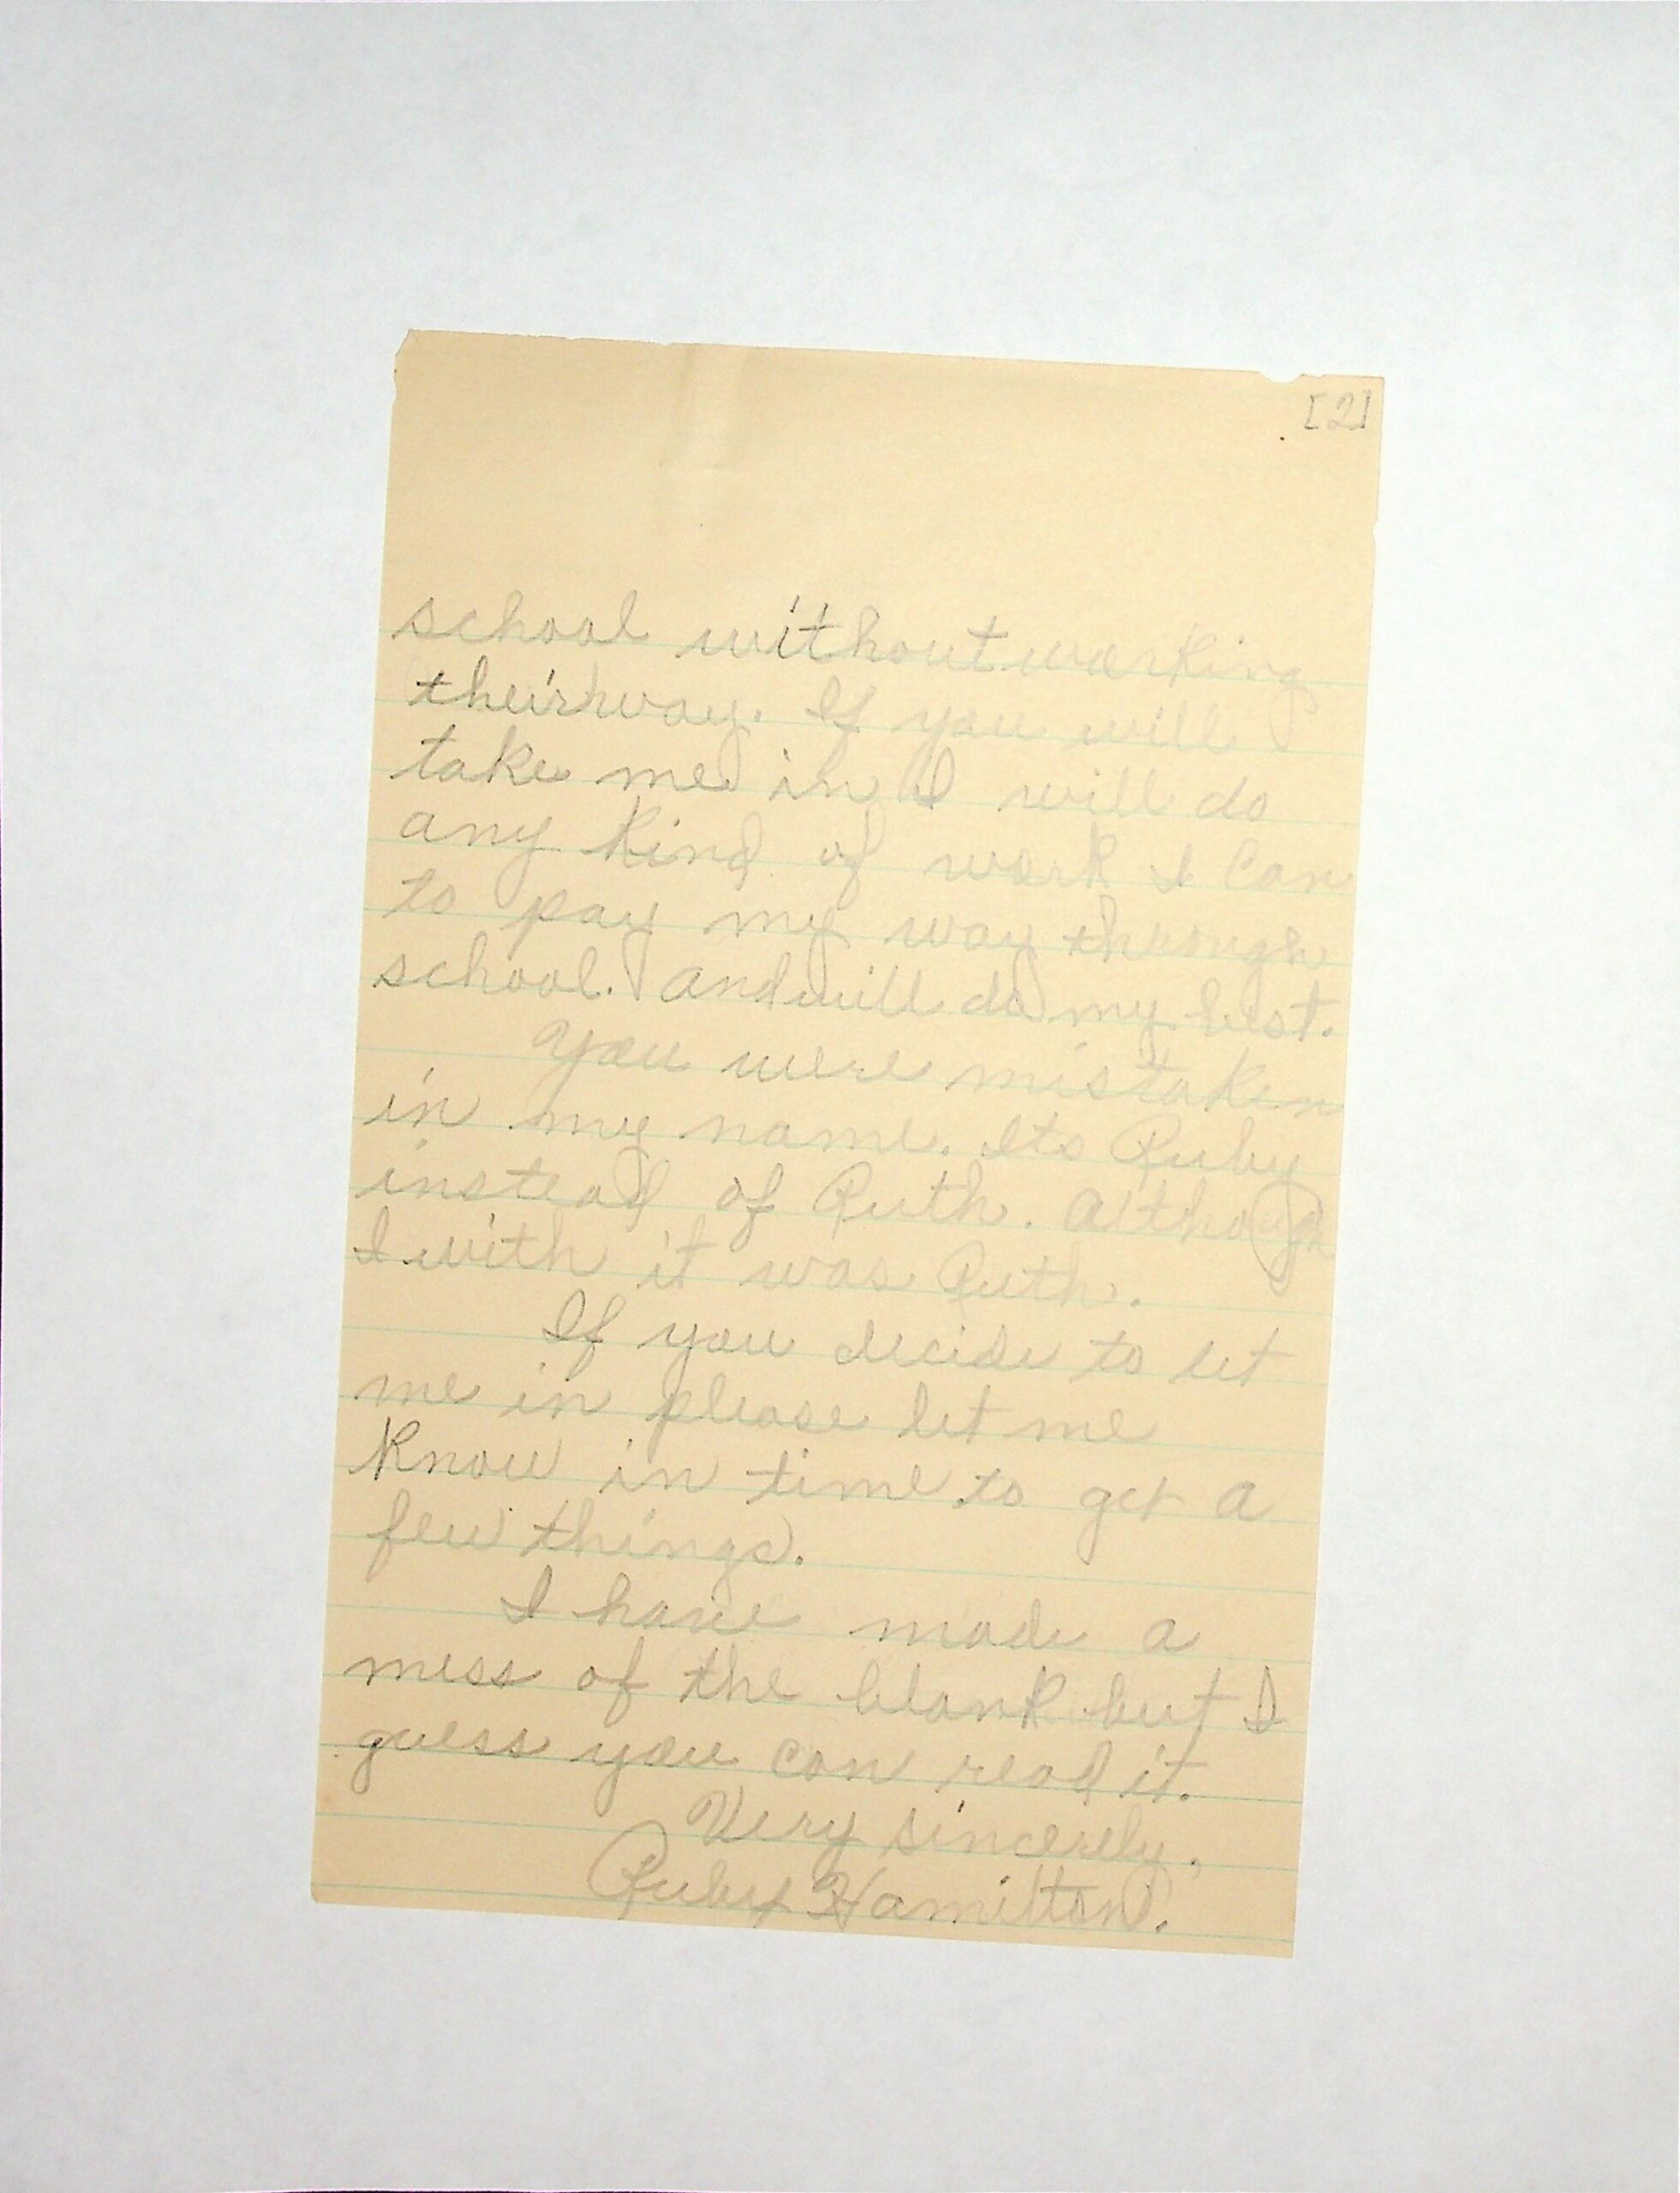 [2]
school without working
their way. If you will
take me in I will do
any kind of work I can
to pay my way through
school. and will do my best.
You were mistaken
in my name. Its Ruby
instead of Ruth. Although
I with it was Ruth.
If you decide to let
me in please let me
know in time to get a
few things.
I have made a
mess of the blank but I
guess you can read it.
Very sincerely,
Ruby Hamilton.